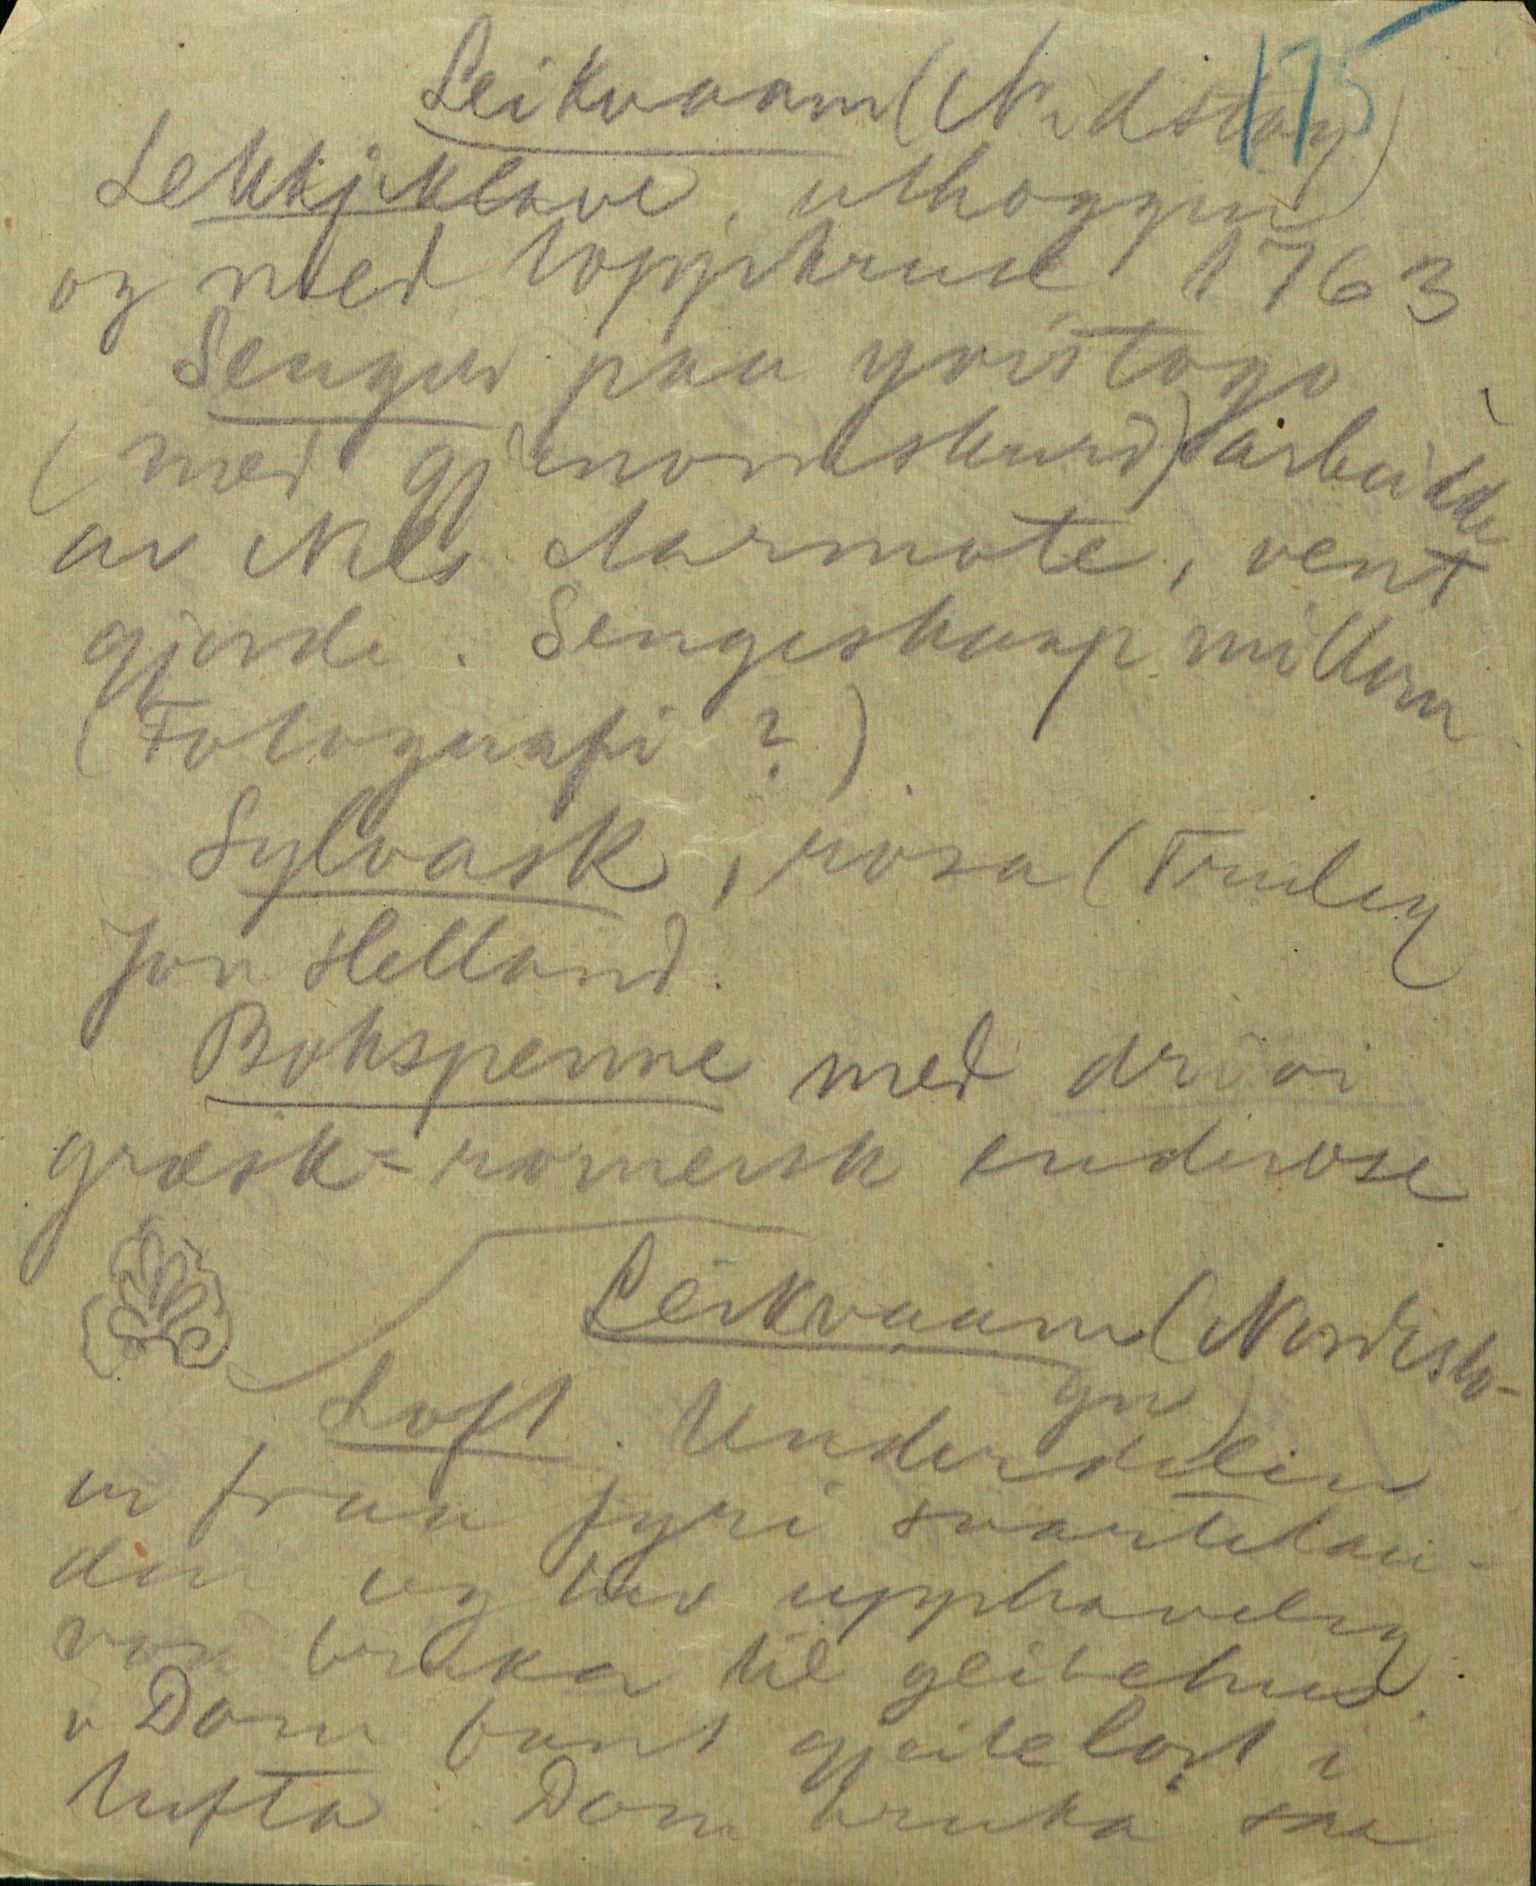 175
Leikvaam (Nedstog)
Lekkjeklave, uthoggen
og med toppskrud 1763
Sengur paa yvistogo
(med gjenomskurd) arbeidde
av Nils Aarmote, vent
gjorde. Sengeskaap millom
(Fotografi ?)
Sylvask, rosa (Truleg
Jon Helland.
Bokspenne med drivi
græsk-romersk enderose
Leikvaam (Nordisto-
gu)
Loft. Underdelen
er fraa fyri svartedau-
den og har upphaveleg
vor bruka til geitehus.
Dom fant gjeitelort i
tufta. Dom bruka saa